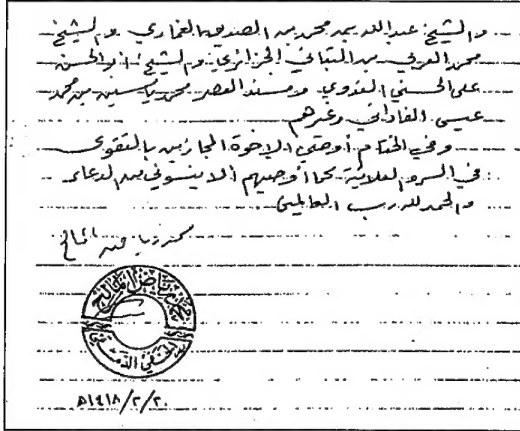 والشيخ عبد الله بن محمد بن الصديق الغماري والشيخ
محمد العربي بن التباني الجزائري والشيخ أبو الحسن
علي الحسني الندوي ومسند العصر محمد ياسين بن محمد
عيسى الفاداني وغيرهم
وفي الختام أوصي الإخوة المجازين بالتقوى
في السر والعلانية كما أوصيهم ألا ينسوني من الدعاء
والحمد لله رب العالمين
محمد رياض المالح
محمد رياض المالح
الحنفي الدمشقي
١٤١٨/٢/٢٠هـ